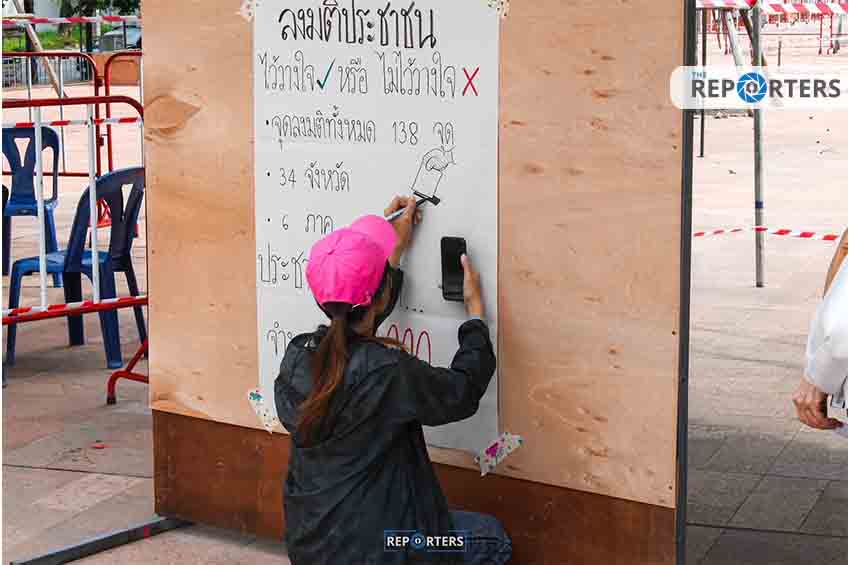 ลงมติประชาชน
ไว้วางใจ ✓ หรือ ไม่ไว้วางใจ ✗
• จุดลงมติทั้งหมด 138 จุด
• 34 จังหวัด
• 6 ภาค
THE REPORTERS
REPORTERS